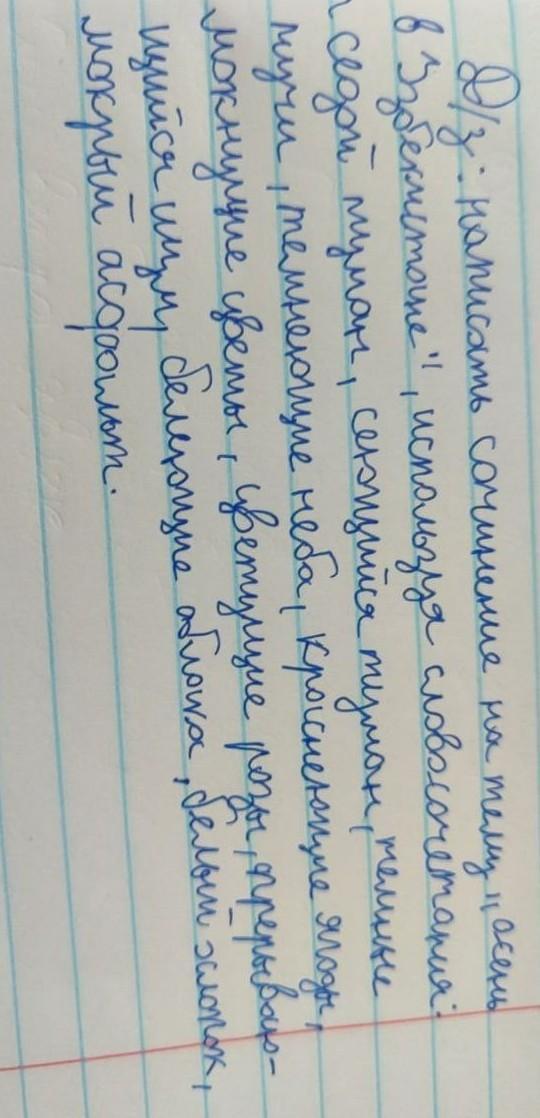 Д/з: написать сочинение на тему „осень
в Узбекистане", используя словосочетания:
седой туман, сеющийся туман, темные
тучи, темнеющие неба, краснеющие ягоды,
мокнущие цветы, цветущие розы, прерываю-
щийся шум, белеющие облака, белый хлопок,
мокрый асфальт.